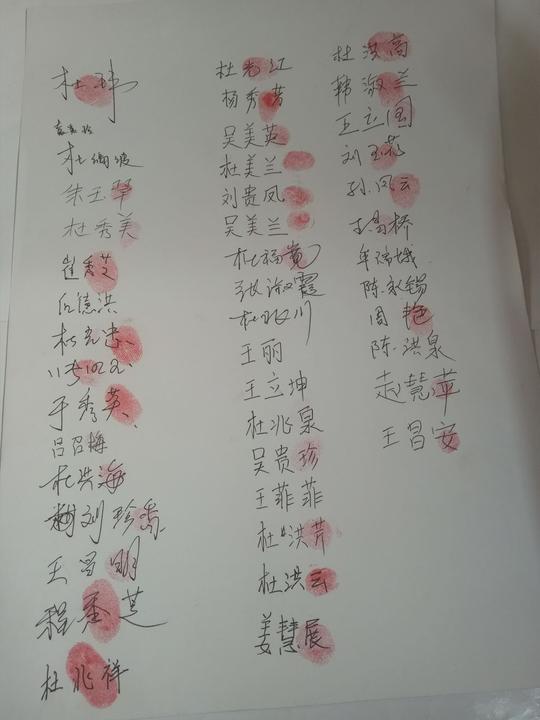 杜玮
朱玉琴
杜秀美
崔秀芝
石德洪
杜克忠
于秀英
吕召梅
杜洪海
刘珍香
王昌明
程秀芝
杜兆祥
杜光江
杨秀芳
吴美英
杜美兰
刘贵凤
吴美兰
杜福亮
张淑霞
王丽
王立坤
杜兆泉
吴贵珍
王菲菲
杜洪芹
杜洪云
姜慧展
杜洪高
韩淑兰
王立国
刘玉花
孙凤云
牟瑞娥
陈永锡
周艳
陈洪泉
赵慧萍
王昌安